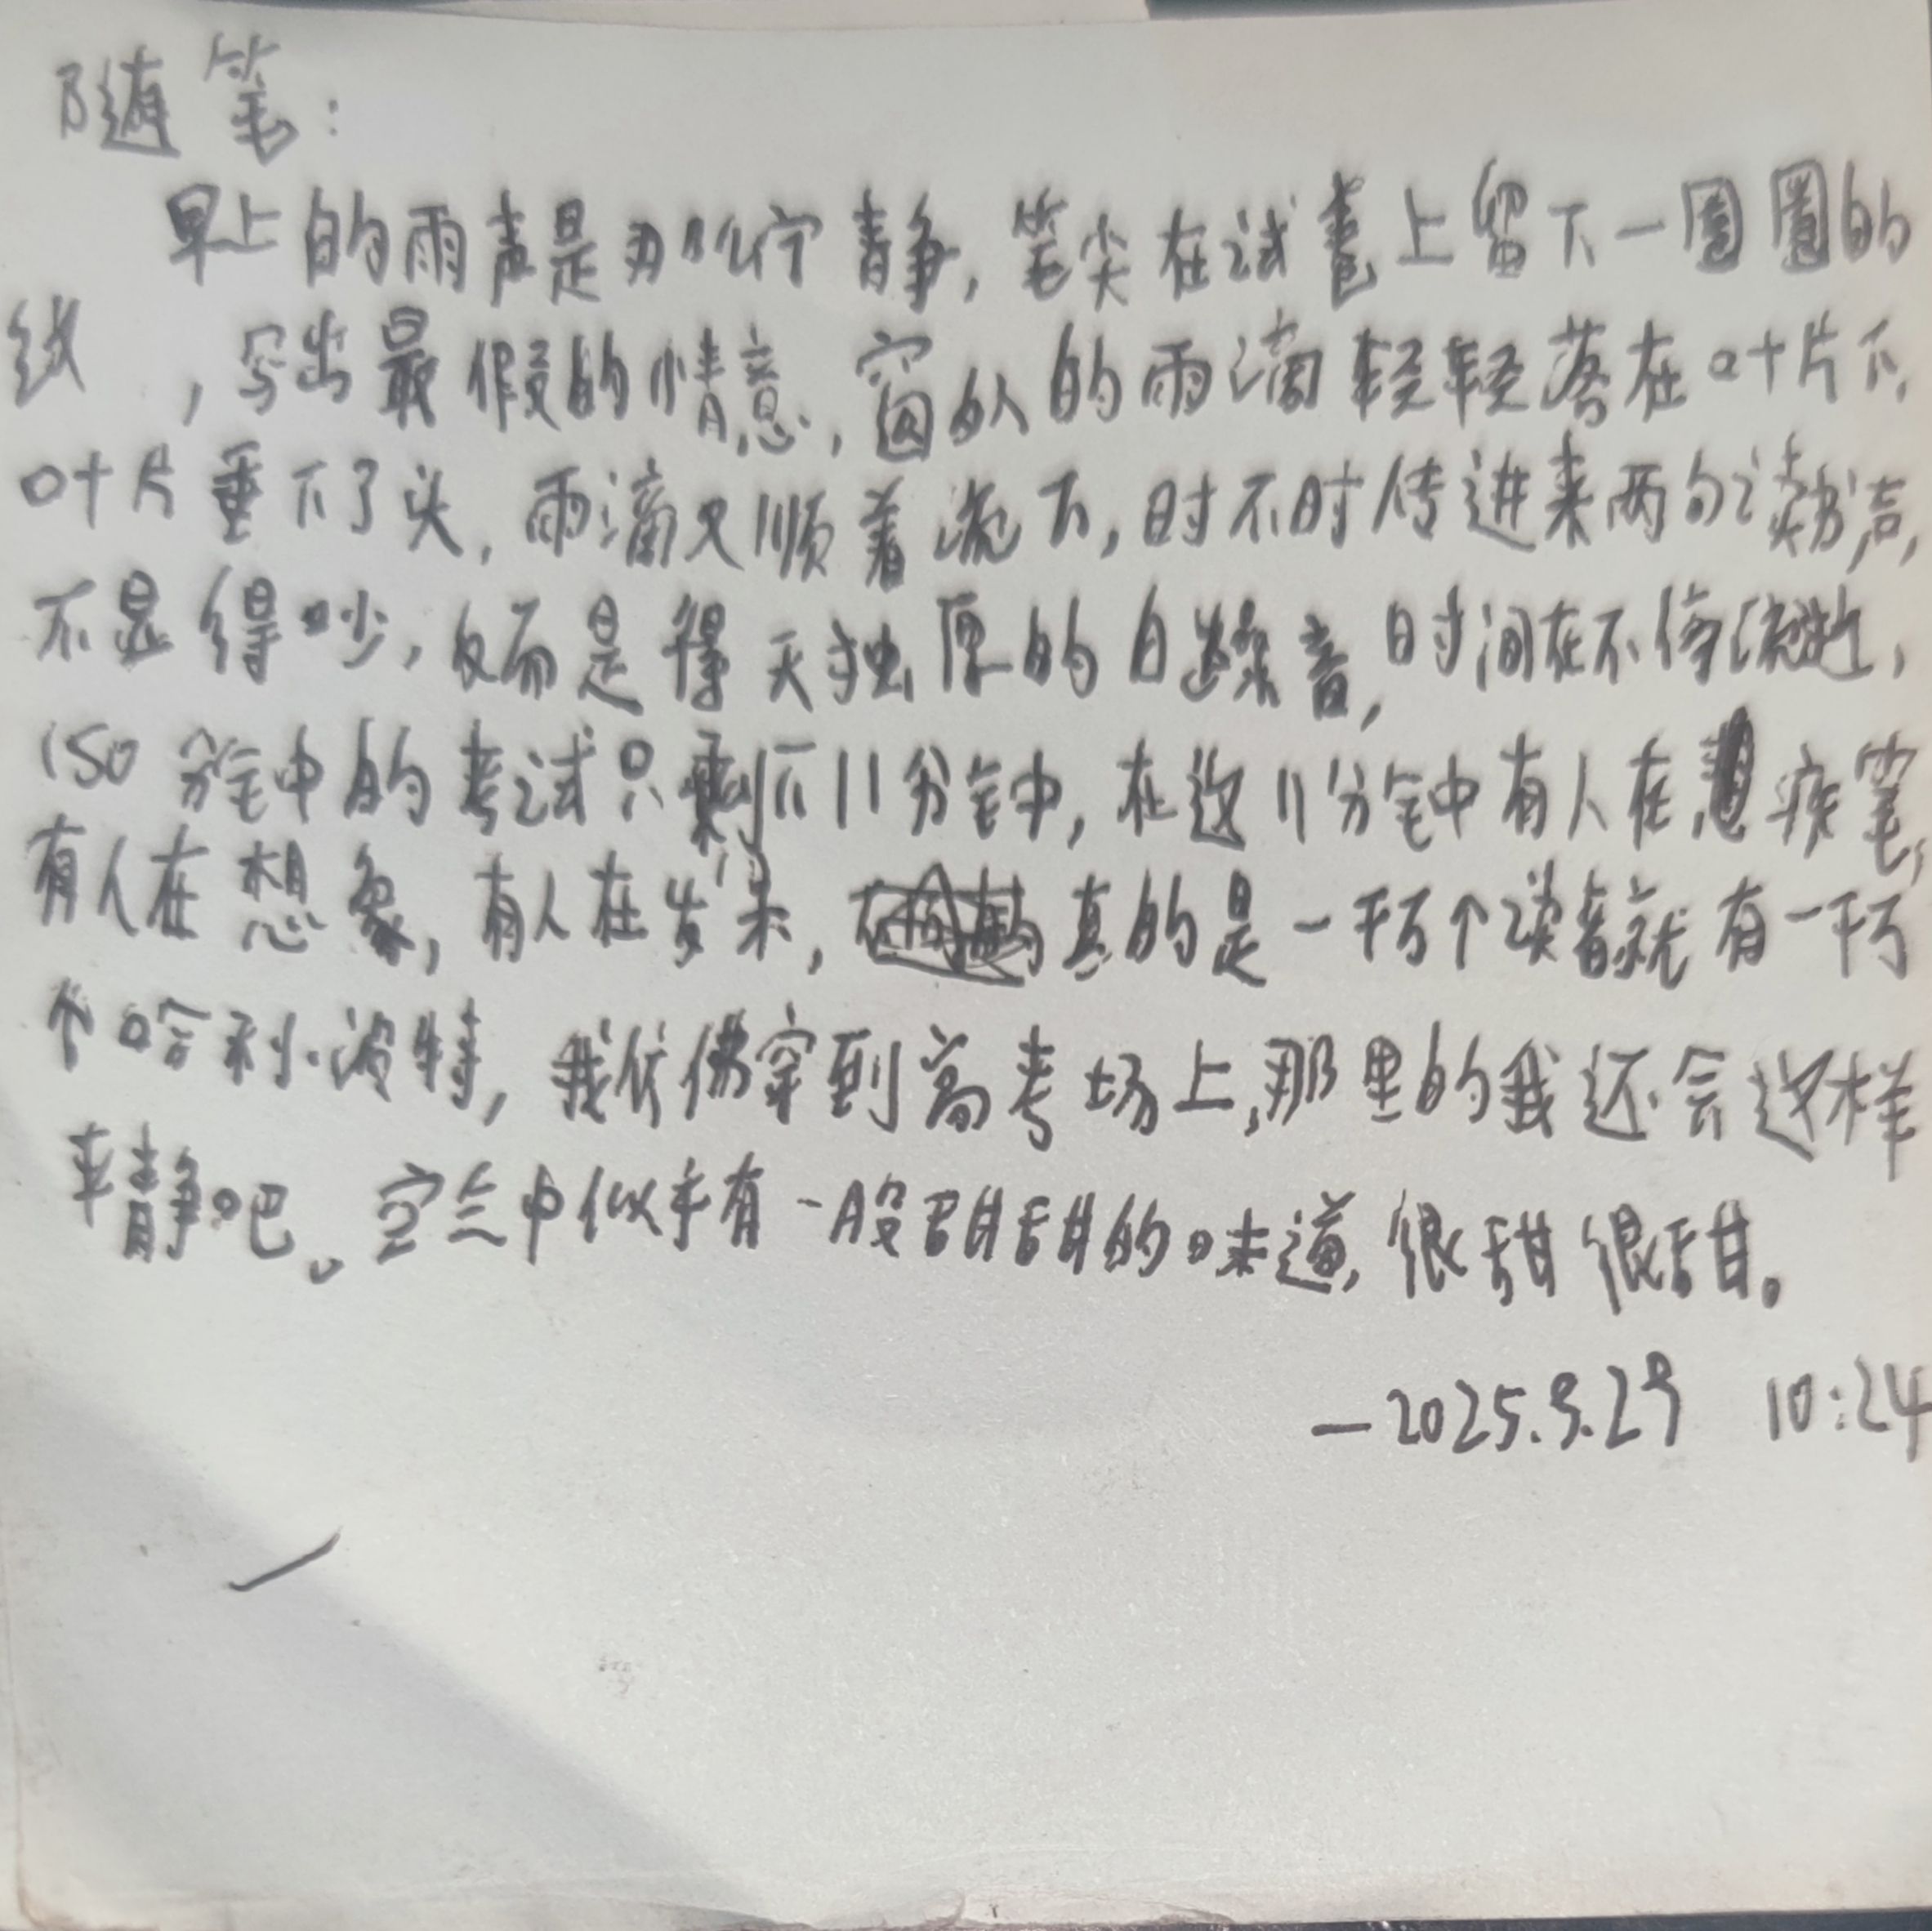 随笔:
早上的雨声是那么宁静,笔尖在试卷上留下一圈圈的
线,写出最假的情意,窗外的雨滴轻轻落在叶片下,
叶片垂下了头,雨滴又顺着流下,时不时传进来两句读书声,
不显得吵,反而是得天独厚的白噪音,时间在不停流逝,
150分钟的考试只剩下11分钟,在这11分钟中有人在疾笔,
有人在想象,有人在发呆,真的是一千万个读者就有一千万
个哈利·波特,我仿佛穿到高考场上,那里的我还会这样
平静吧。空气中似乎有一股甜甜的味道,很甜很甜。
—2025.9.29 10:24